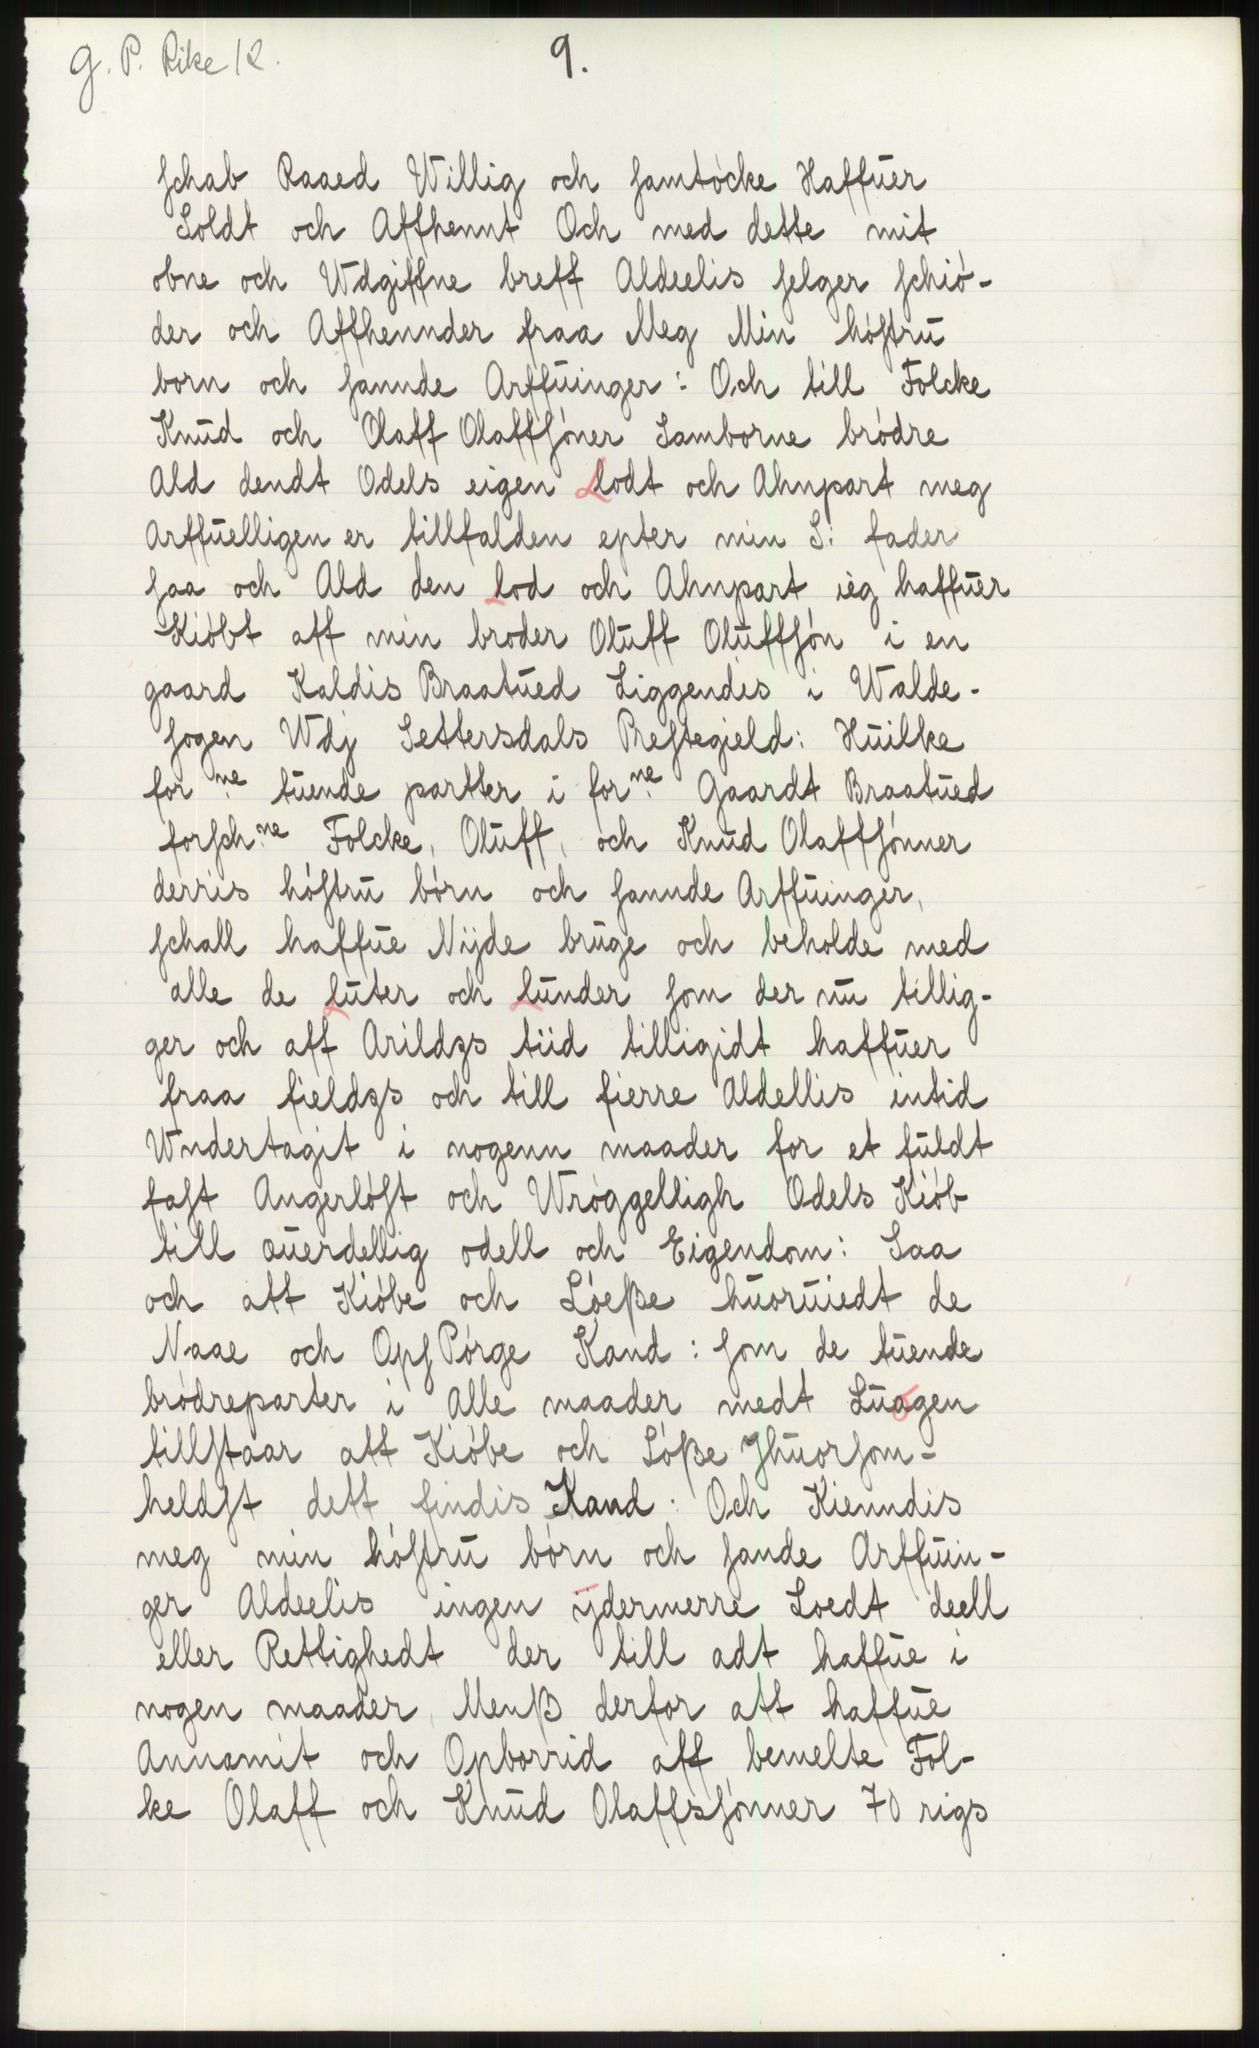 G. P. Rike 12.
9.
schab Raaed Willig och samtöcke Haffuer
Soldt och Affhennt Och med dette mit
obne och Wdgiffne breff Aldeelis selger schiö-
der och Affhennder fraa Meg Min höstru
born och sannde Arffuinger: Och till Folcke
Knud och Olaff Olaffsöner Samborne brödre
Ald dendt Odels eigen Lodt och Ahnpart meg
Arffuelligen er tillfalden epter min S: fader
saa och Ald den Lod och Ahnpart ieg haffuer
Kiöbt aff min broder Oluff Oluffsön i en
gaard Kaldis Braatued Liggendis i Walde-
sogen Wdj Settersdals Prestegield: Huilke
for ne tuende partter i for ne Gaardt Braatued
forsch ne Folcke, Oluff, och Knud Olaffsönner
derris höstru börn och sannde Arffuinger,
schall haffue Nijde bruge och beholde med
alle de Luter och Lunder som der nu tillig-
ger och aff Arildzs tiid tilligidt haffuer
fraa fieldzs och till fierre Aldellis intid
Wndertagit i nogenn maader for et fuldt
fast Angerlöst och Wröggelligh Odels Kiöb
till auerdellig odell och Eigendom: Saa
och att Kiöbe och Löeße huoruiedt de
Naae och OpsPörge Kand: som de tuende
brödreparter i Alle maader medt Luogen
tillstaar att Kiöbe och Löße Jhuorsom-
heldst dett findis Kand: Och Kienndis
meg min höstru börn och sande Arffuin-
ger Aldeelis ingen ÿdermerre Loedt deell
eller Rettighedt der till adt haffue i
nogen maader, Menß derfor att haffue
Annamit och Opborrid aff bemelte Fol-
ke Olaff och Knud Olaffssönner 70 rigs